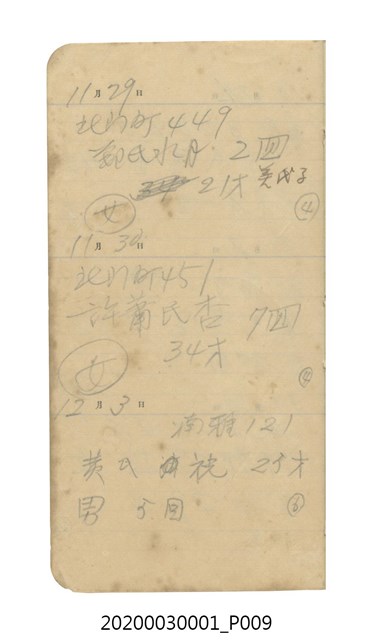 11月29日
北門町449
鄭氏水月 2回
21才 美氏子
女 ④
11月30日
北門町451
許蕭氏杏 7回
34才
女 ④
12月3日
湳雅121
黄氏 25才
男 5回 ⑥
20200030001_P009